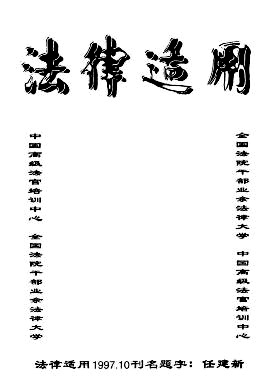 法律适用
中国高级法官培训中心 全国法院干部业余法律大学
全国法院干部业余法律大学 中国高级法官培训中心
法律适用1997.10刊名题字：任建新